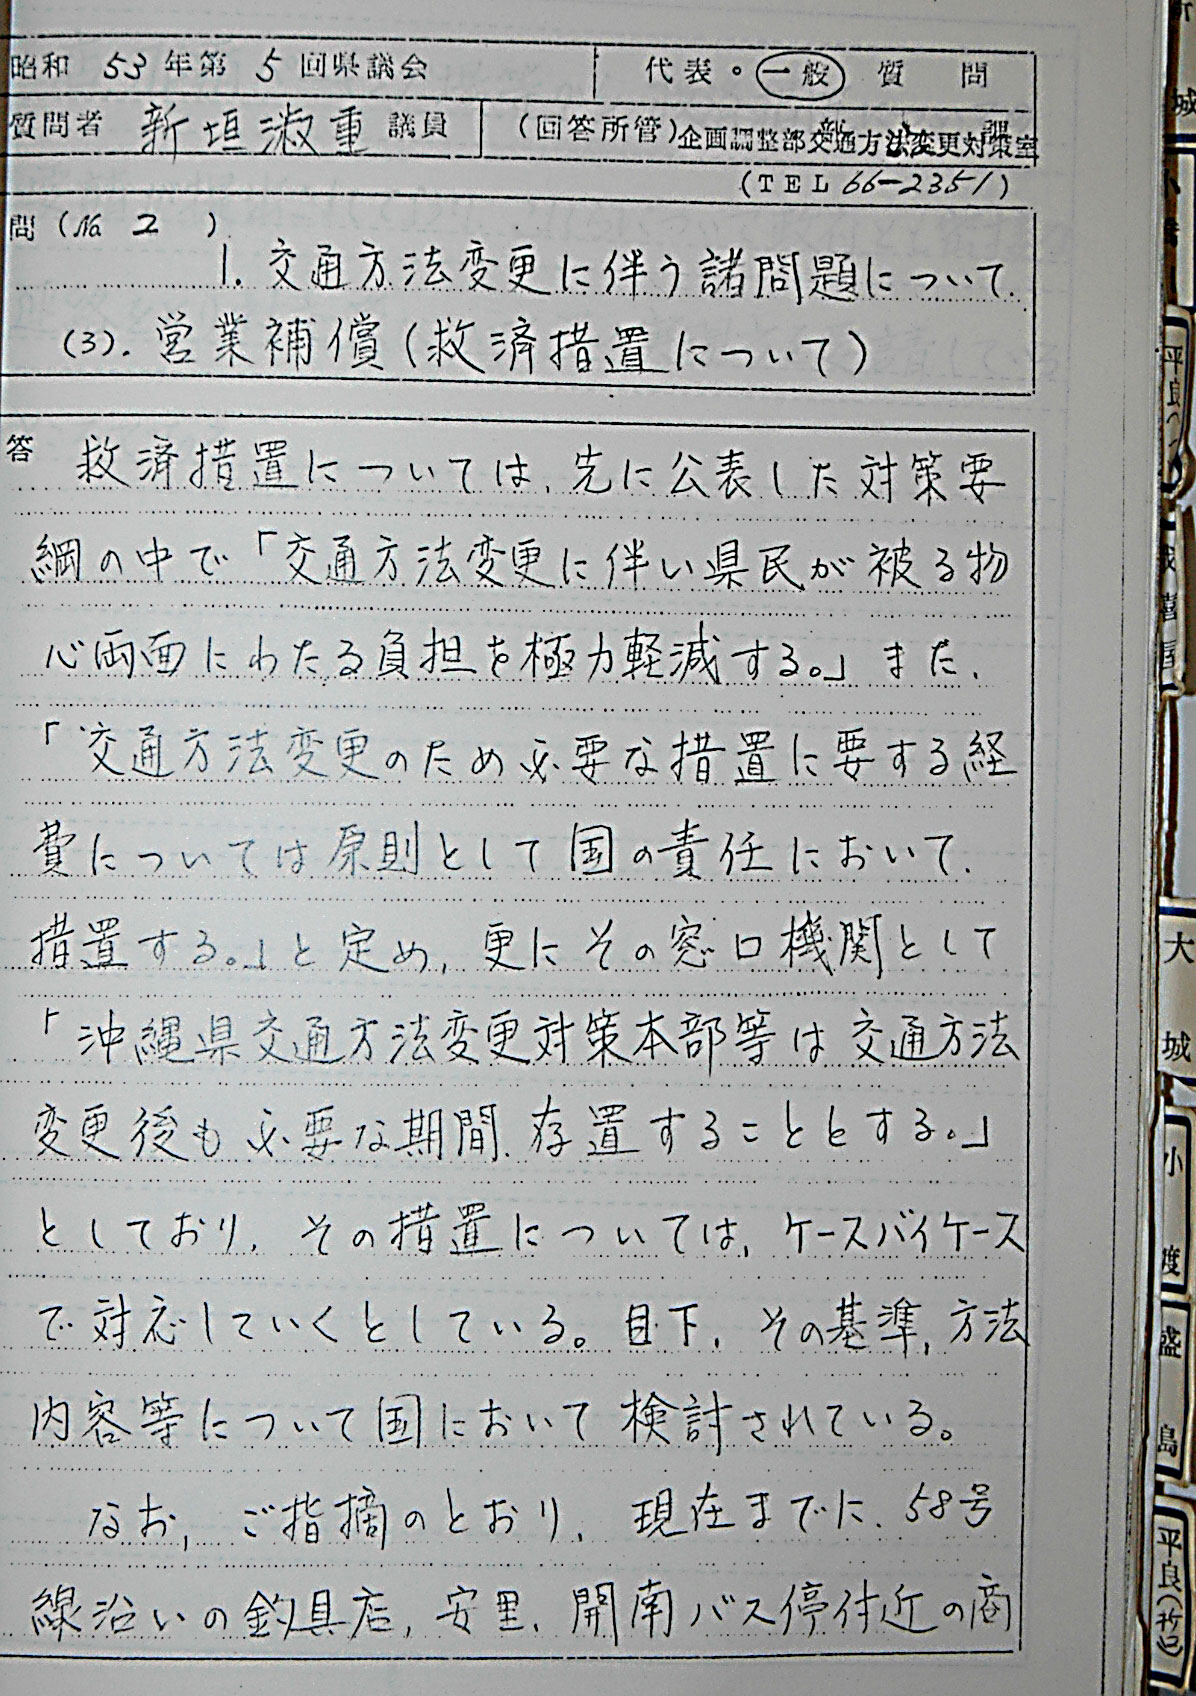 昭和 53 年第 5 回県議会
代表・一般 質 問
質問者 新垣淑重 議員
(回答所管) 企画調整部交通方法変更対策室
(TEL 66-2351)
問 (No. 2 )
1. 交通方法変更に伴う諸問題について.
(3). 営業補償(救済措置について)
答 救済措置については、先に公表した対策要
綱の中で「交通方法変更に伴い県民が被る物
心両面にわたる負担を極力軽減する。」また、
「交通方法変更のため必要な措置に要する経
費については原則として国の責任において、
措置する。」と定め、更にその窓口機関として
「沖縄県交通方法変更対策本部等は交通方法
変更後も必要な期間、存置することとする。」
としており、その措置については、ケースバイケース
で対応していくとしている。目下、その基準、方法
内容等について国において検討されている。
なお、ご指摘のとおり、現在までに、58号
線沿いの釣具店、安里、開南バス停付近の商
城
平良(
大城
小渡
盛島
平良(